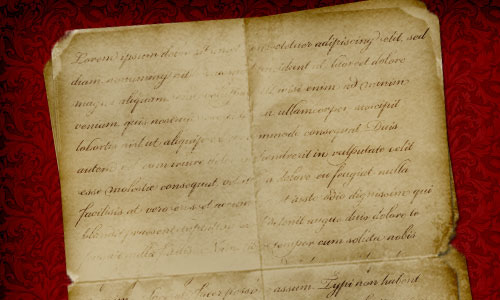 Lorem ipsum dolor sit amet adipiscing elit, sed
diam nonummy laoreet dolore
magna aliquam wisi enim ad minim
veniam, quis nostrud ullamcorper suscipit
lobortis nisl ut aliquip commodo consequat. Duis
autem eum iriure hendrerit in vulputate velit
esse molestie consequat, vel dolore eu feugiat nulla
facilisis at vero eros et iusto odio dignissim qui
blandit praesent delenit augue duis dolore te
nulla tempor cum soluta nobis
facer possim assum. Typi non habent